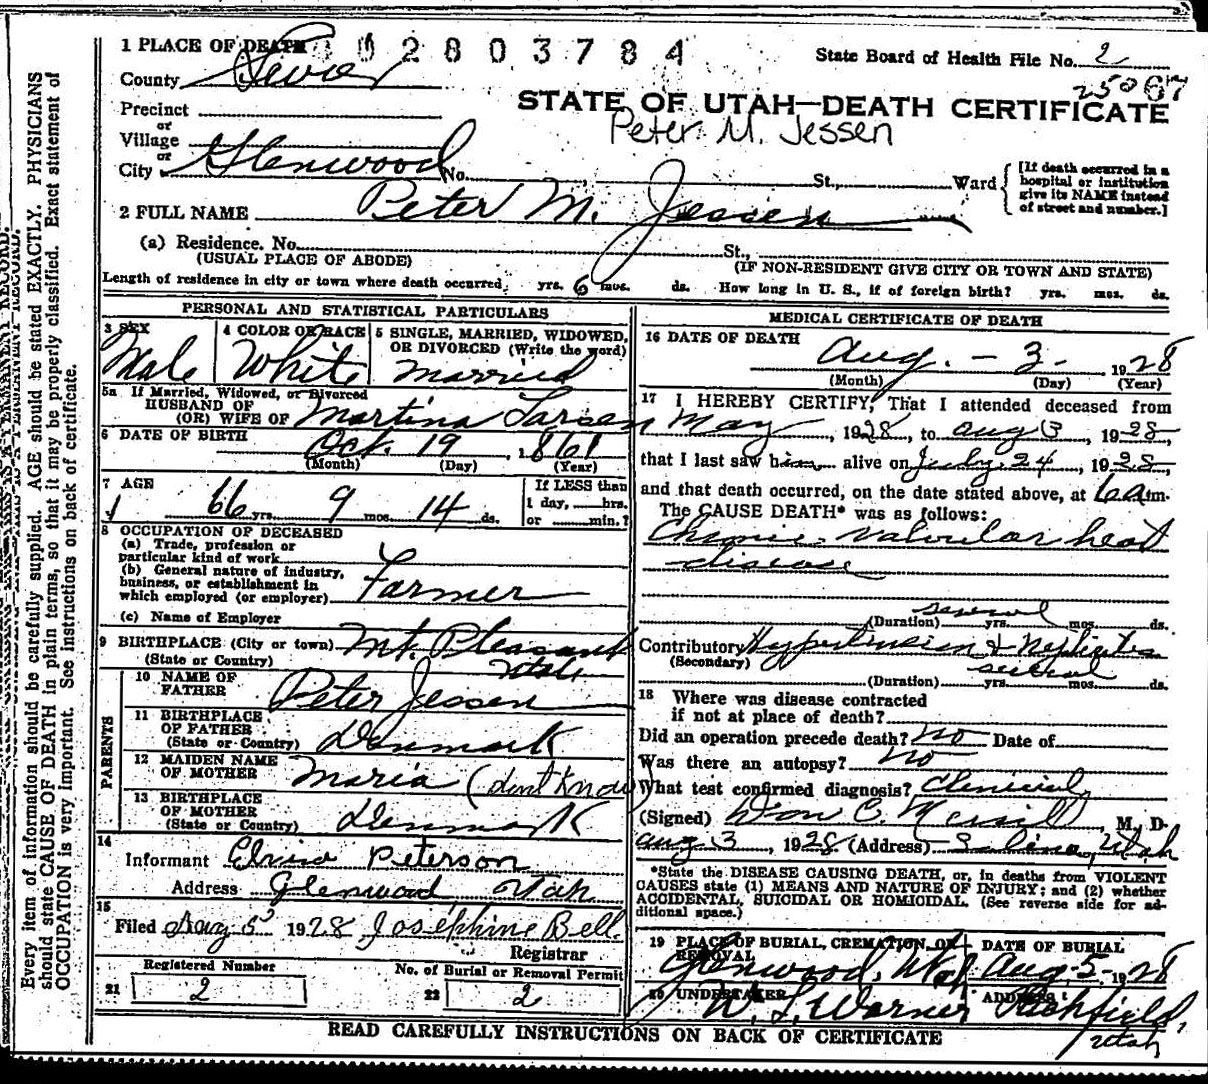 Every item of information should be carefully supplied. AGE should be stated EXACTLY. PHYSICIANS
should state CAUSE OF DEATH in plain terms, so that it may be properly classified. Exact statement of
OCCUPATION is very important. See instructions on back of certificate.
2803784
State Board of Health File No. 2
25067
1 PLACE OF DEATH
County Sevier
STATE OF UTAH—DEATH CERTIFICATE
Peter M. Jessen
Precinct
or
Village
or
City Glenwood No. St., Ward
[If death occurred in a
hospital or institution
give its NAME instead
of street and number.]
2 FULL NAME Peter M. Jessen
(a) Residence. No. St.,
(USUAL PLACE OF ABODE) (IF NON-RESIDENT GIVE CITY OR TOWN AND STATE)
Length of residence in city or town where death occurred. yrs. 6 mos. ds. How long in U. S., if of foreign birth? yrs. mos. ds.
PERSONAL AND STATISTICAL PARTICULARS
3 SEX
Male
4 COLOR OR RACE
White
5 SINGLE, MARRIED, WIDOWED,
OR DIVORCED (Write the word)
Married
5a If Married, Widowed, or Divorced
HUSBAND OF
(OR) WIFE OF Martina Larsen
6 DATE OF BIRTH Oct. 19, 1861
(Month) (Day) (Year)
7 AGE
66 yrs. 9 mos. 14 ds.
If LESS than
1 day, hrs.
or min.?
8 OCCUPATION OF DECEASED
(a) Trade, profession or
particular kind of work
(b) General nature of industry,
business, or establishment in
which employed (or employer) Farmer
(c) Name of Employer
9 BIRTHPLACE (City or town) Mt. Pleasant
(State or Country) Utah
PARENTS
10 NAME OF
FATHER Peter Jessen
11 BIRTHPLACE
OF FATHER
(State or Country) Denmark
12 MAIDEN NAME
OF MOTHER Maria (dont know)
13 BIRTHPLACE
OF MOTHER
(State or Country) Denmark
14
Informant Peterson
Address Glenwood, Utah
15
Filed Aug 5 1928 Josephine Bell
Registrar
Registered Number
21 2
No. of Burial or Removal Permit
22 2
MEDICAL CERTIFICATE OF DEATH
16 DATE OF DEATH
Aug. - 3 - 1928
(Month) (Day) (Year)
17 I HEREBY CERTIFY, That I attended deceased from
May, 1928, to Aug 3, 1928,
that I last saw him alive on July 24, 1928,
and that death occurred, on the date stated above, at 6 a m.
The CAUSE DEATH* was as follows:
Chronic valvular heart
disease
(Duration) several yrs. mos. ds.
Contributory Hypertension & Nephritis
(Secondary)
(Duration) several yrs. mos. ds.
18 Where was disease contracted
if not at place of death?
Did an operation precede death? No Date of
Was there an autopsy? No
What test confirmed diagnosis? Clinical
(Signed) Don C. Merrill, M. D.
Aug 3, 1928 (Address) Salina, Utah
*State the DISEASE CAUSING DEATH, or, in deaths from VIOLENT
CAUSES state (1) MEANS AND NATURE OF INJURY; and (2) whether
ACCIDENTAL, SUICIDAL OR HOMICIDAL. (See reverse side for ad-
ditional space.)
19 PLACE OF BURIAL, CREMATION, OR
REMOVAL
Glenwood, Utah
DATE OF BURIAL
Aug-5-1928
20 UNDERTAKER
W. L. Warner
ADDRESS
Richfield,
Utah
READ CAREFULLY INSTRUCTIONS ON BACK OF CERTIFICATE